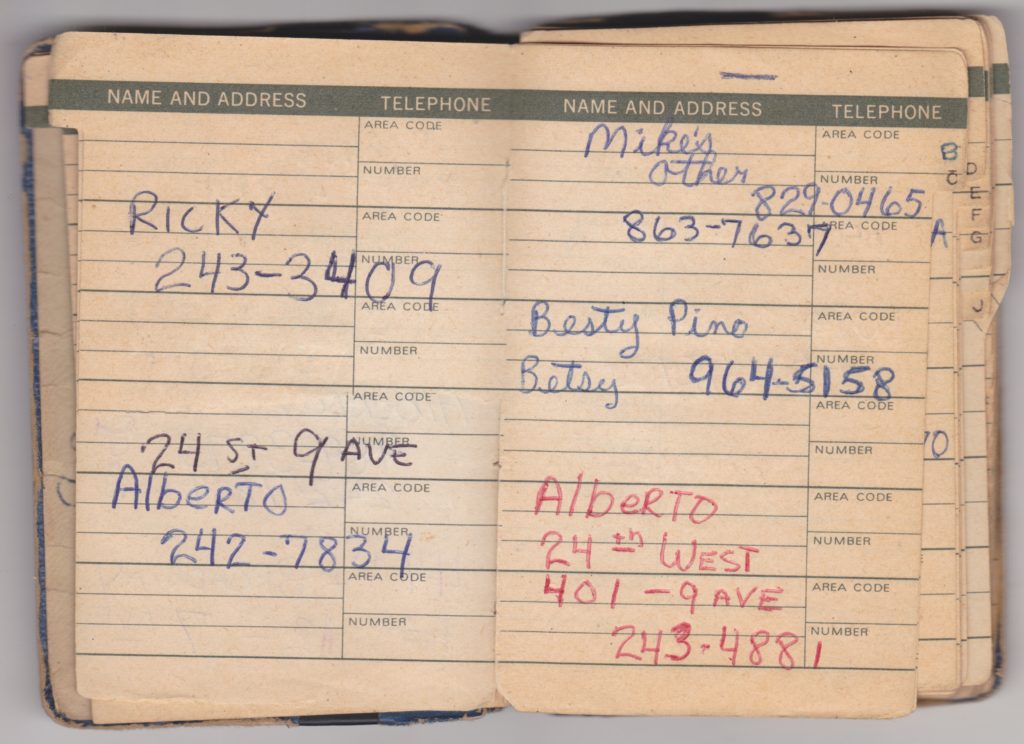 NAME AND ADDRESS TELEPHONE
AREA CODE
NUMBER
RICKY
AREA CODE
243-3409
NUMBER
AREA CODE
NUMBER
AREA CODE
24 ST 9 AVE
NUMBER
Alberto
AREA CODE
242-7834
NUMBER
AREA CODE
NUMBER
NAME AND ADDRESS TELEPHONE
AREA CODE
Mike's
other
NUMBER
829-0465
863-7637
AREA CODE
NUMBER
Besty Pino
AREA CODE
Betsy 964-5158
NUMBER
AREA CODE
NUMBER
Alberto
AREA CODE
24th WEST
NUMBER
401 - 9 AVE
AREA CODE
243-4881
NUMBER
A
B
C
D
E
F
G
J